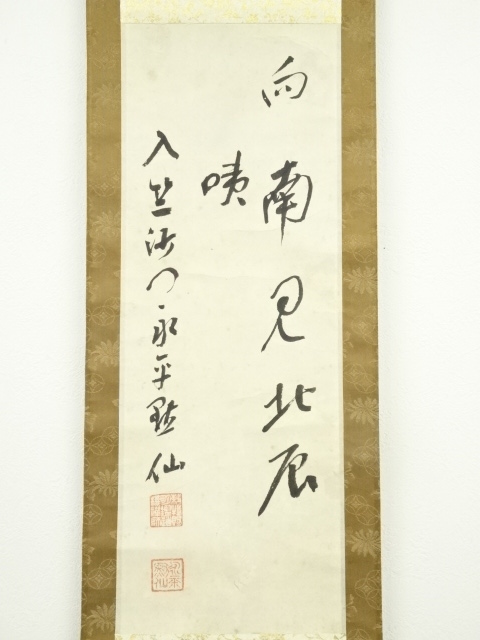 向南見北辰
咦
入竺沙門永平黙仙